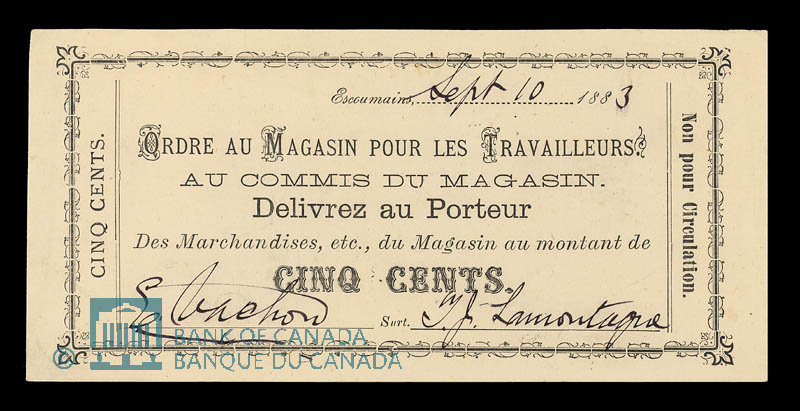 Escoumains, Sept 10 1883
ORDRE AU MAGASIN POUR LES TRAVAILLEURS.
AU COMMIS DU MAGASIN.
Delivrez au Porteur
Des Marchandises, etc., du Magasin au montant de
CINQ CENTS.
E. Vachon Surt. T. J. Lamontagne
CINQ CENTS.
Non pour Circulation.
© BANK OF CANADA
BANQUE DU CANADA